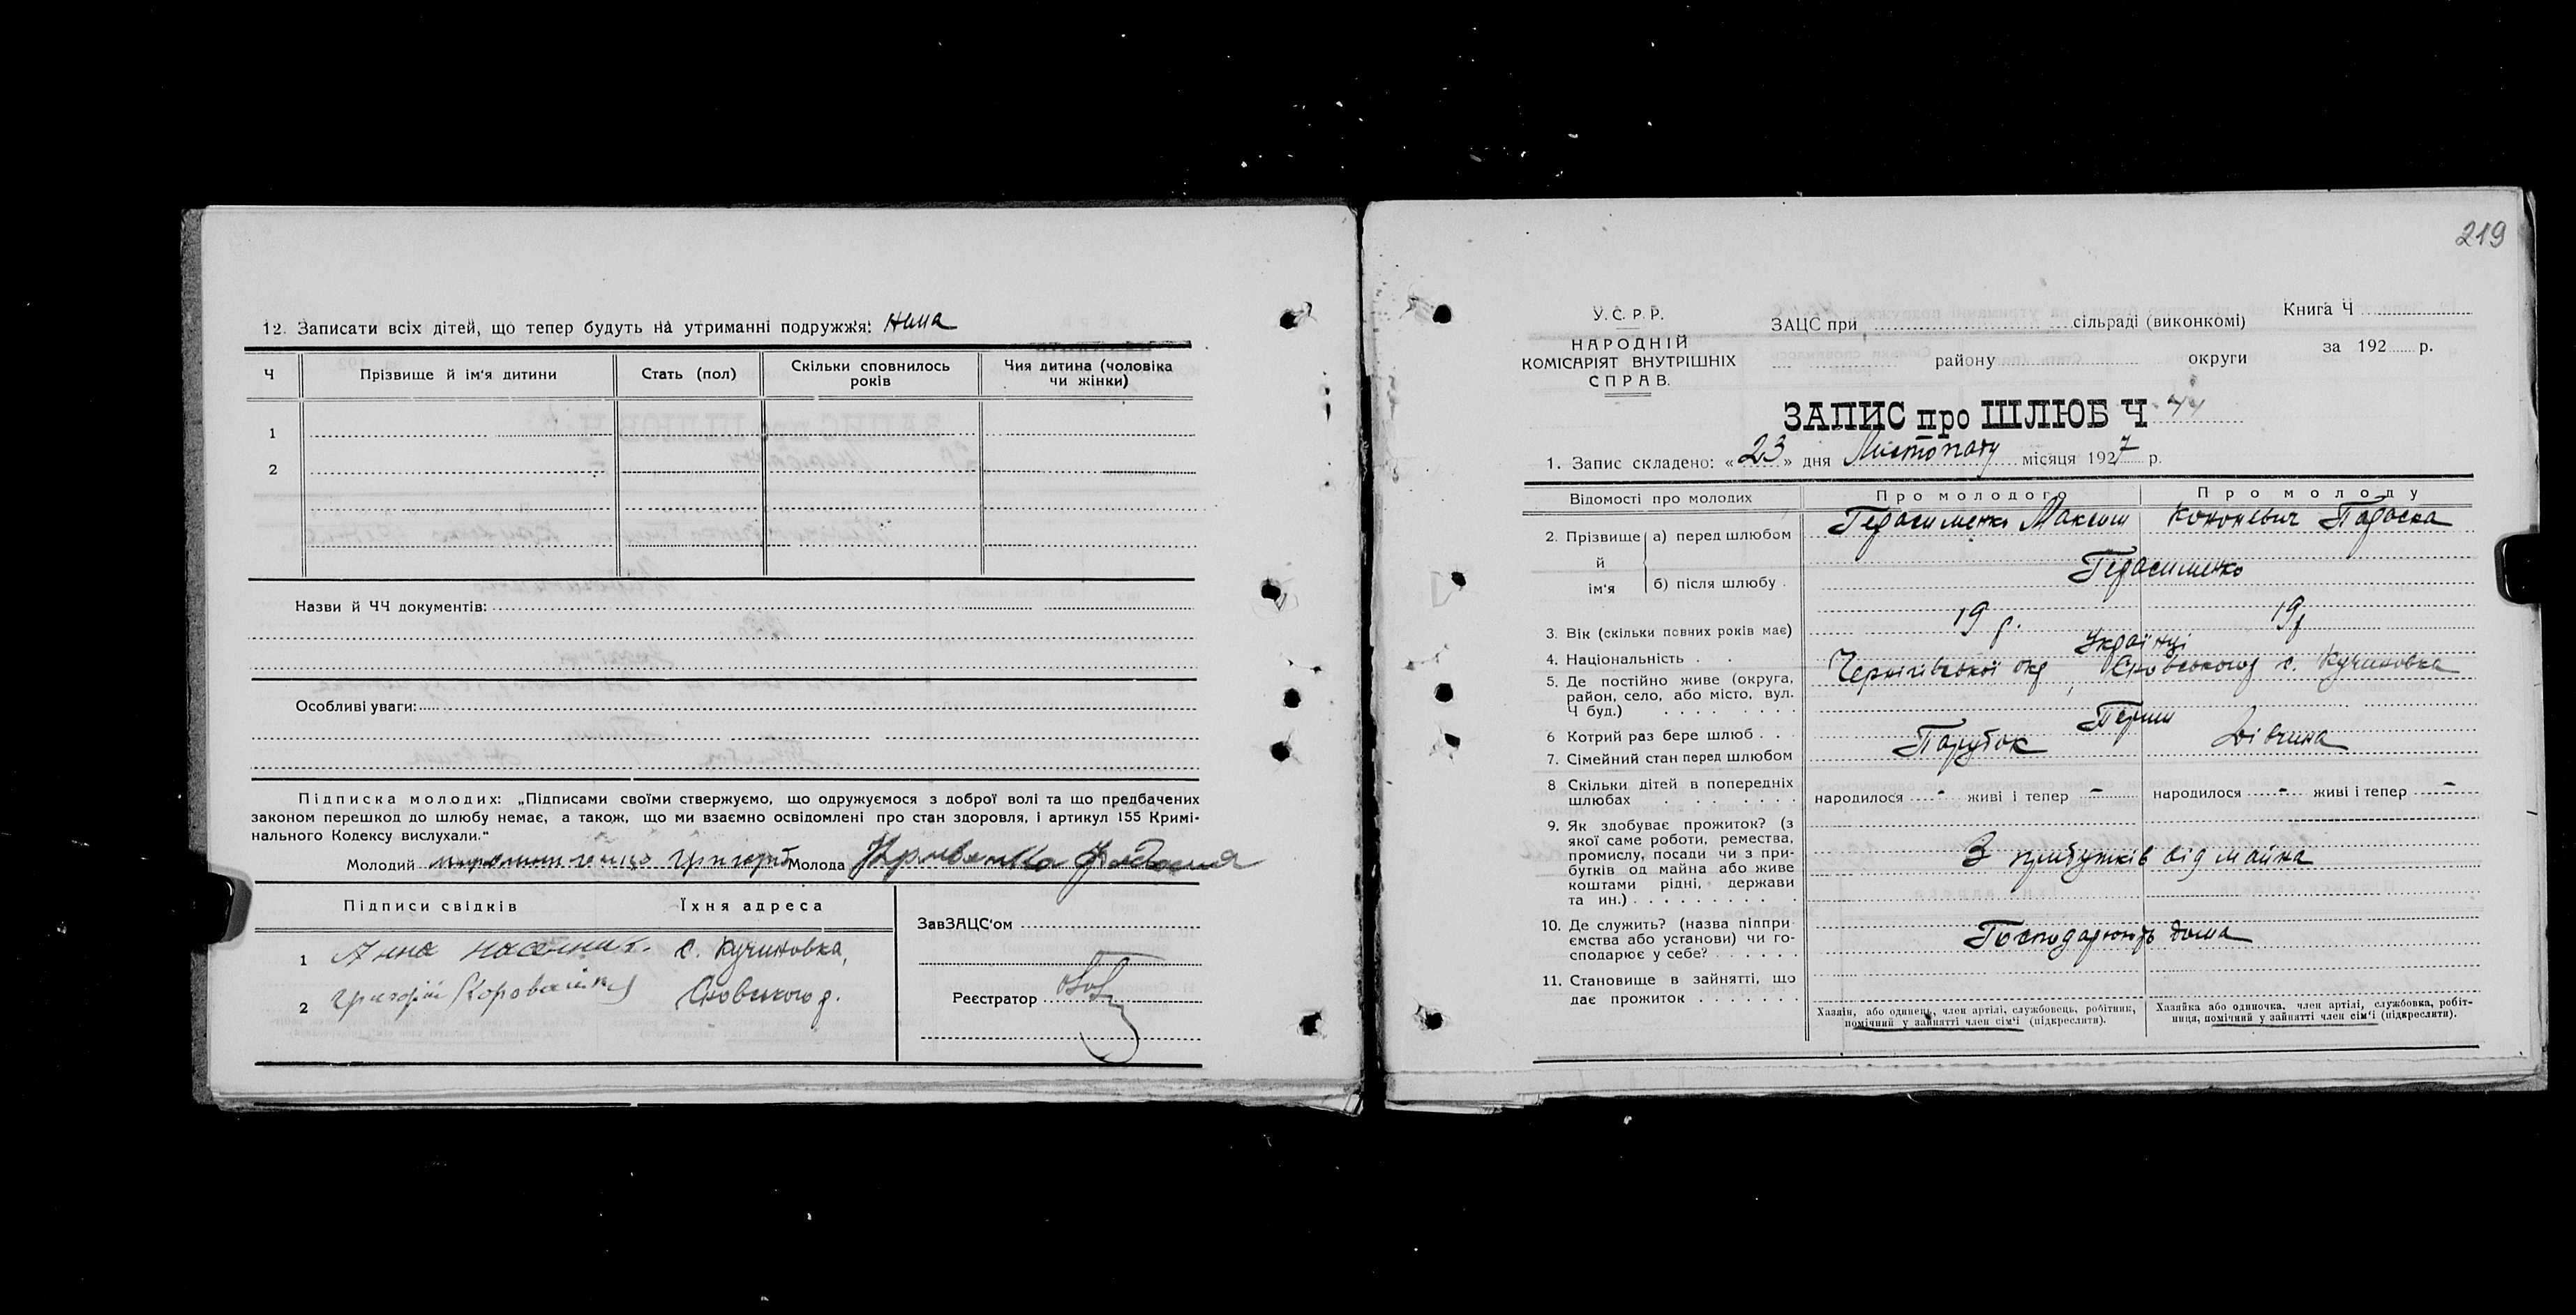 12. Записати всіх дітей, що тепер будуть на утриманні подружжя: нима
Ч
Прізвище й ім'я дитини
Стать (пол)
Скільки сповнилось
років
Чия дитина (чоловіка
чи жінки)
1
2
Назви й ЧЧ документів:
Особливі уваги:
Підписка молодих: „Підписами своїми стверджуємо, що одружуємося з доброї волі та що предбачених
законом перешкод до шлюбу немає, а також, що ми взаємно освідомлені про стан здоровля, і артикул 155 Кримі-
нального Кодексу вислухали."
Молодий Григорій Молода
Підписи свідків
Їхня адреса
1 Анна с. Кучиновка,
2 Григорій Сновського р.
ЗавЗАЦС'ом
Реєстратор
219
У.С.Р.Р.
НАРОДНІЙ
КОМІСАРІЯТ ВНУТРІШНІХ
СПРАВ.
ЗАЦС при сільраді (виконкомі)
району округи
Книга Ч
за 192 р.
ЗАПИС про ШЛЮБ Ч 44
1. Запис складено: «23» дня Листопаду місяця 1927 р.
Відомості про молодих
Про молодого
Про молоду
2. Прізвище й ім'я
а) перед шлюбом
Герасименко Максим
Кононевич Параска
б) після шлюбу
Герасименко
3. Вік (скільки повних років має)
19 р.
19 р
4. Національність
Українці
5. Де постійно живе (округа,
район, село, або місто, вул.
Ч буд.)
Чернігівської окр, Сновського р с. Кучиновка
6 Котрий раз бере шлюб
Перш
7. Сімейний стан перед шлюбом
Парубок
Дівчина
8 Скільки дітей в попередніх
шлюбах
народилося - живі і тепер -
народилося - живі і тепер -
9. Як здобуває прожиток? (з
якої саме роботи, ремества,
промислу, посади чи з при-
бутків од майна або живе
коштами рідні, держави
та ин.)
З прибутків від майна
10. Де служить? (назва підпри-
ємства або установи) чи го-
сподарює у себе?
Господарюють дома
11. Становище в зайнятті, що
дає прожиток
Хазяїн, або одинець, член артілі, службовець, робітник,
помічний у зайнятті член сім'ї (підкреслити).
Хазяйка або одиночка, член артілі, службовка, робіт-
ниця, помічний у зайнятті член сім'ї (підкреслити).